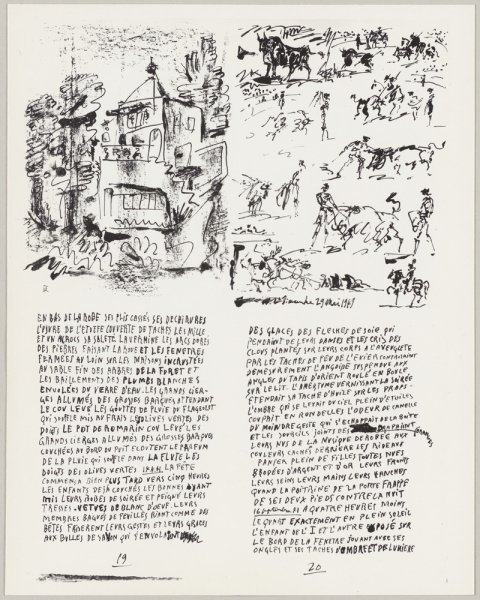 dimanche 29 Mai 1949
EN BAS DE LA ROBE SES PLIS CASSÉS SES DECHIRURES
L'USURE DE L'ETOFFE COUVERTE DE TACHES LES MILLE
ET UN ACROCS SA SALETÉ LA VERMINE LES ARCS DORÉS
DES PIERRES FAISANT LA ROUE ET LES FENETRES
FERMÉES AU LOIN SUR LES MAISONS INCRUSTÉES
AU SABLE FIN DES ARBRES DE LA FORET ET
LES BAILLEMENTS DES PLUMBS BLANCHES
ENVOLÉES DU VERRE D'EAU. LES GRANDS CIER-
GES ALLUMÉS DES GROSSES BARQUES ATTENDANT
LE COU LEVÉ LES GOUTTES DE PLUIE DU FLAGEOLET
QUI SOUFFLE MIS AU FRAIS LES OLIVES VERTES DES
DOIGTS LE POT DE ROMARIN COU LEVÉ LES
GRANDS CIERGES ALLUMÉS DES GROSSES BARQUES
COUCHÉES AU BORD DU PUIT ECOUTENT LE PARFUM
DE LA PLUIE QUI SOUFFLE DANS LA FLUTE LES
DOIGTS DES OLIVES VERTES LA FETE
COMMENÇA BIEN PLUS TARD VERS CINQ HEURES
LES ENFANTS DEJA COUCHÉS LES BONNES AYANT
MIS LEURS ROBES DE SOIRÉE ET PEIGNÉ LEURS
TRESSES. VETUES DE BLANC D'OEUF. LEURS
MEMBRES BAGUÉS DE FEUILLES RIANT COMME DES
BÊTES FIGNERENT LEURS GESTES ET LEURS GRACES
AUX BULLES DE SAVON QUI S'ENVOLAIENT
19
DES GLACES DES FLECHES DE SOIE QUI
PENDAIENT DE LEURS DAMES ET LES CRIS DES
CLOUS PLANTÉS SUR LEURS CORPS A L'AVEUGLETTE
PAR LES TACHES DE FEU DE L'EVIER CONTENAIENT
DEMESUREMENT L'ANGOISSE SUSPENDUE AUX
ANGLES DU TAPIS D'ORIENT ROULÉ EN BOULE
SUR LE LIT. L'ARBETUME VERNISSANT LA SOIRÉE
ETENDAIT SA TACHE D'HUILE SUR LES DRAPS
L'OMBRE QUI SE LEVAIT DU CIEL PLEIN D'ETOILES
COUPAIT EN RONDELLES L'ODEUR DE CANNELLE
DU MOINDRE GESTE QUI S'ECHAPPAIT DE LA BOITE
ET LES SOURCILS JOINTS DES DRAPAIENT
LEURS NUS DE LA MUSIQUE DEROBÉE AUX FRANGES
COULEURS CACHÉS DERRIERE LES RIDEAUX
PANIER PLEIN DE FILLES TOUTES NUES
BRODÉES D'ARGENT ET D'OR LEURS FRONTS
LEURS SEINS LEURS MAINS LEURS HANCHES
QUAND LA POITRINE DE LA PORTE FRAPPE
DE SES DEUX PIEDS CONTRE LA NUIT
A QUATRE HEURES MOINS
LE QUART EXACTEMENT EN PLEIN SOLEIL
L'ENFANT DE L'I ET L'AUTRE POSÉ SUR
LE BORD DE LA FENETRE JOUANT AVEC SES
ONGLES ET SES TACHES D'OMBRE ET DE LUMIERE
20